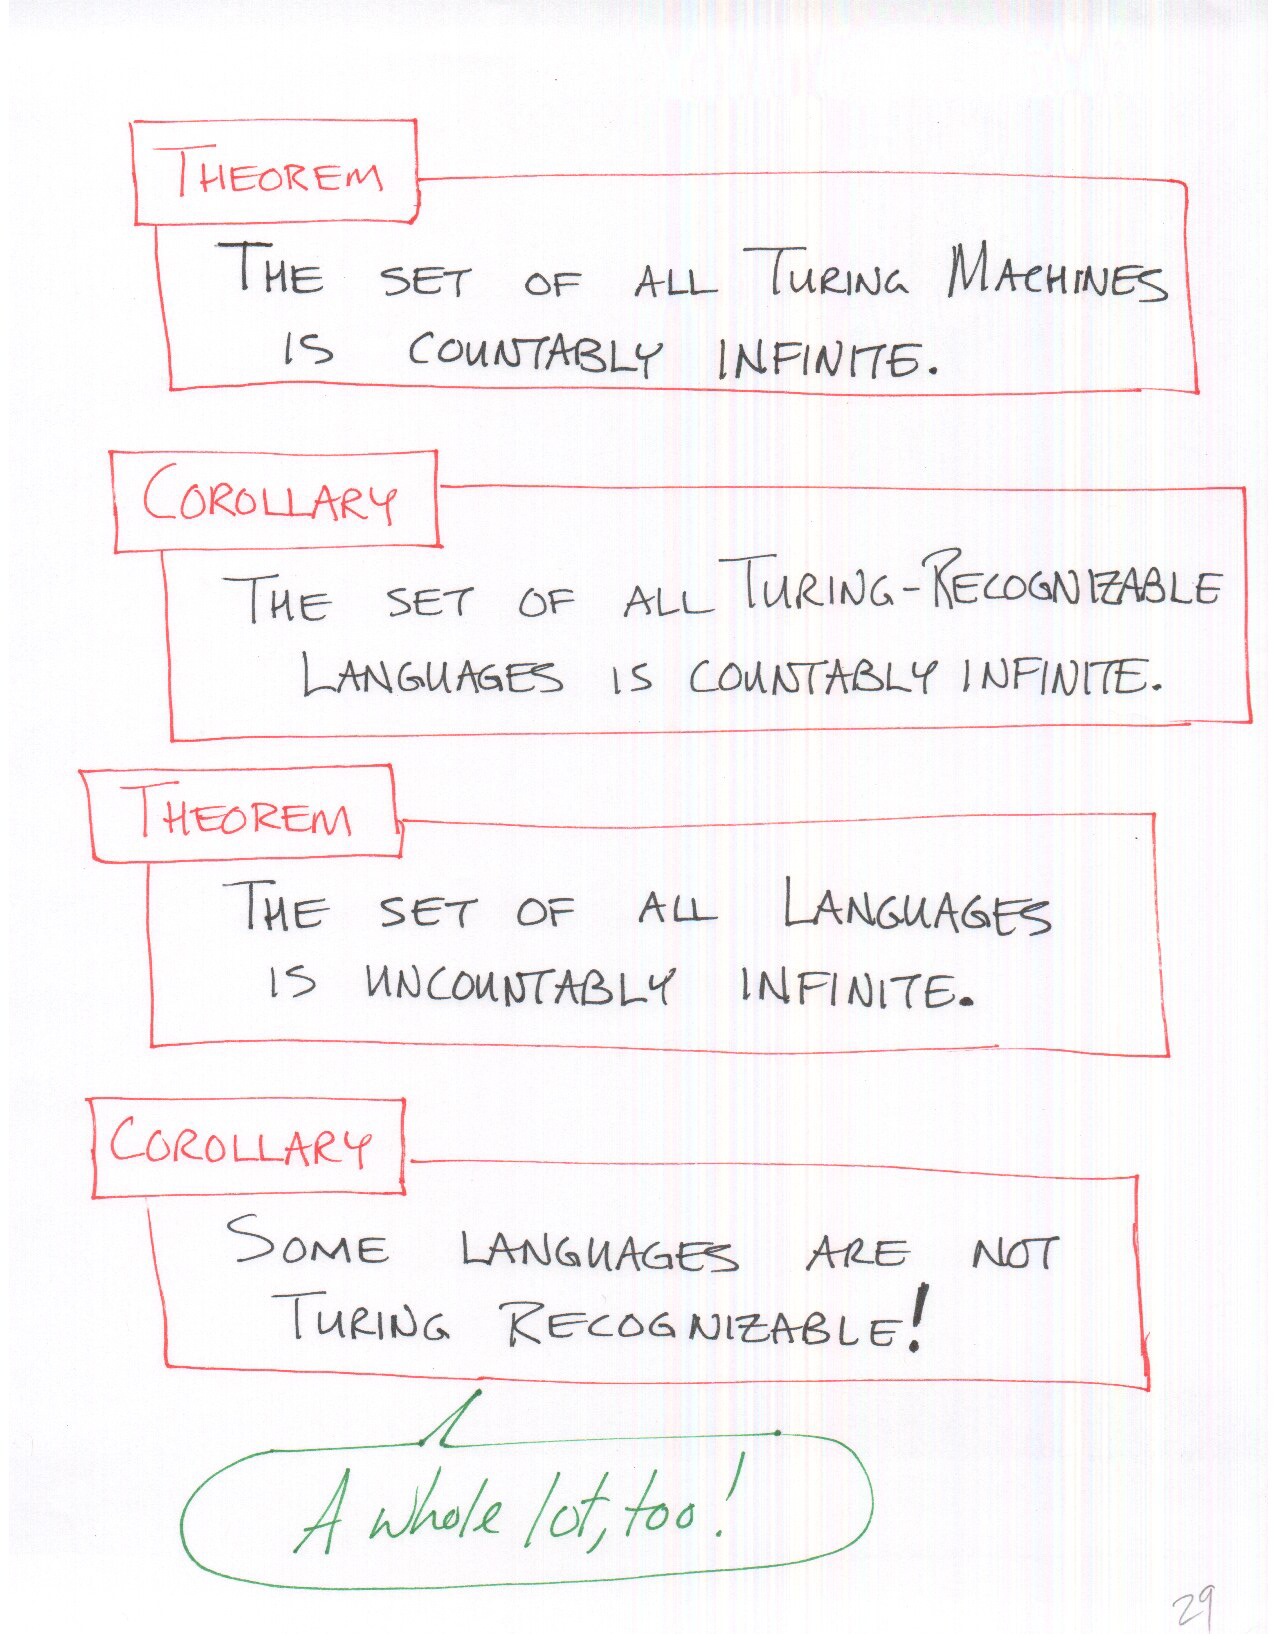 THEOREM
THE SET OF ALL TURING MACHINES
IS COUNTABLY INFINITE.
COROLLARY
THE SET OF ALL TURING-RECOGNIZABLE
LANGUAGES IS COUNTABLY INFINITE.
THEOREM
THE SET OF ALL LANGUAGES
IS UNCOUNTABLY INFINITE.
COROLLARY
SOME LANGUAGES ARE NOT
TURING RECOGNIZABLE!
A whole lot, too!
29